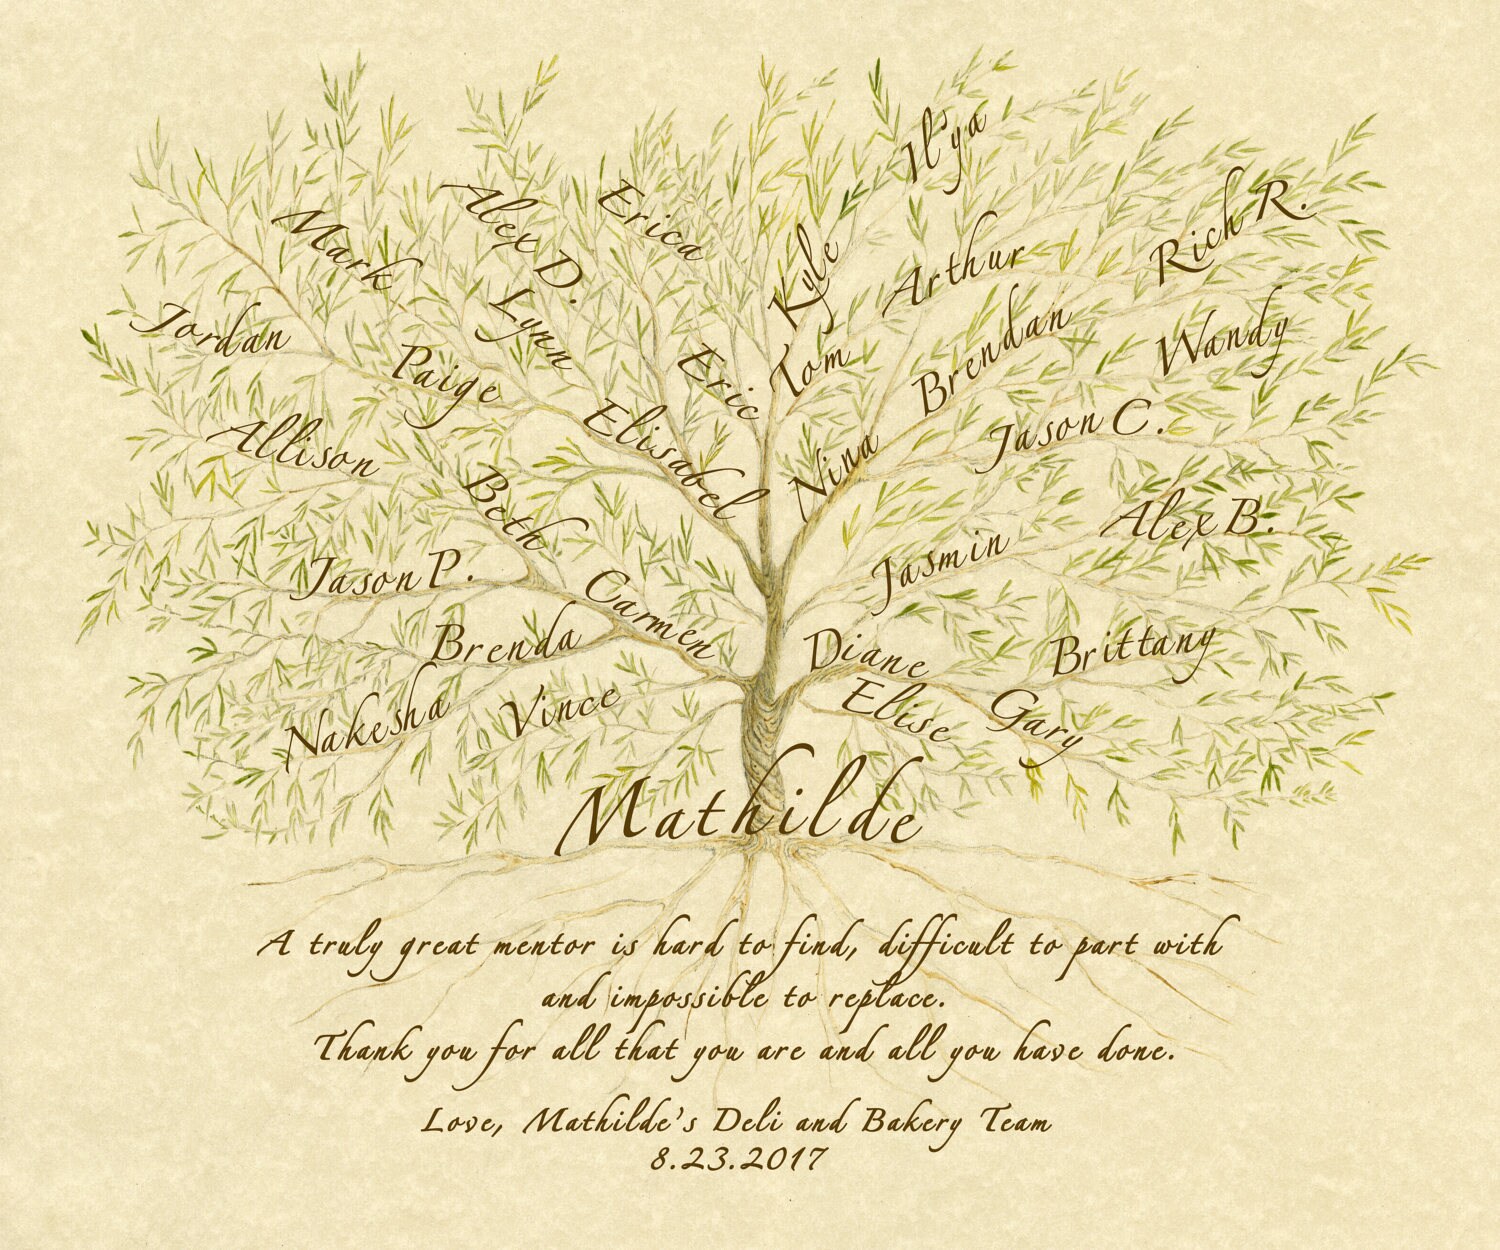 Il'ya
Mark
Alex D.
Erica
Kyle
Arthur
Rich R.
Jordan
Paige
Lynn
Eric
Tom
Brendan
Wandy
Allison
Beth
Elisabel
Nina
Jason C.
Jason P.
Carmen
Jasmin
Alex B.
Brenda
Diane
Brittany
Nakesha
Vince
Elise
Gary
Mathilde
A truly great mentor is hard to find, difficult to part with
and impossible to replace.
Thank you for all that you are and all you have done.
Love, Mathilde's Deli and Bakery Team
8.23.2017